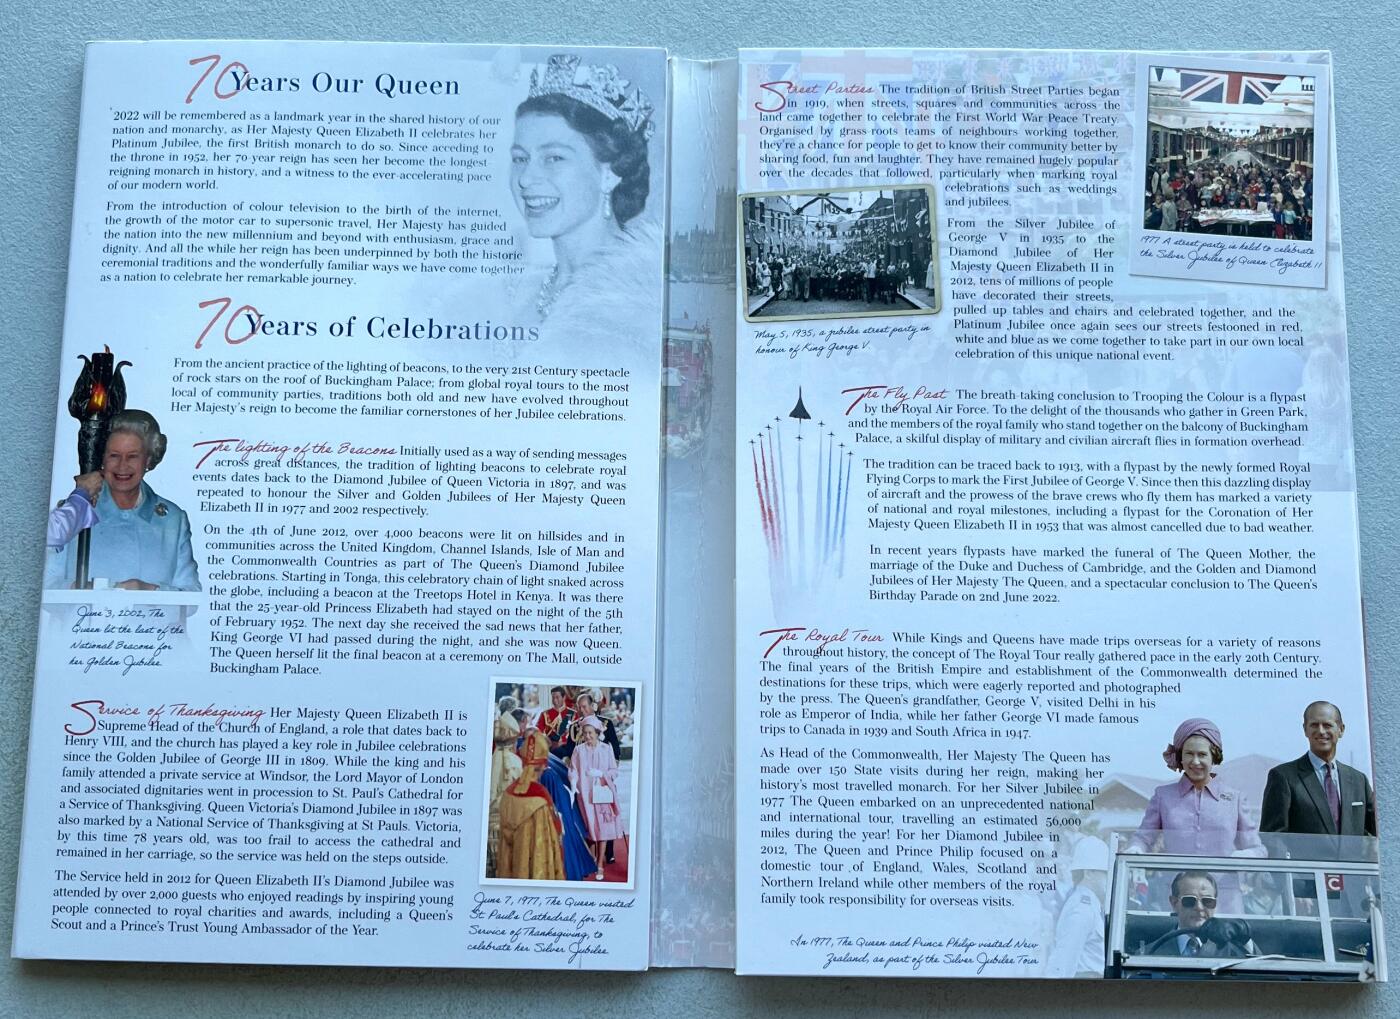 70 Years Our Queen
'2022 will be remembered as a landmark year in the shared history of our
nation and monarchy, as Her Majesty Queen Elizabeth II celebrates her
Platinum Jubilee, the first British monarch to do so. Since acceding to
the throne in 1952, her 70-year reign has seen her become the longest-
reigning monarch in history, and a witness to the ever-accelerating pace
of our modern world.
From the introduction of colour television to the birth of the internet,
the growth of the motor car to supersonic travel, Her Majesty has guided
the nation into the new millennium and beyond with enthusiasm, grace and
dignity. And all the while her reign has been underpinned by both the historic
ceremonial traditions and the wonderfully familiar ways we have come together
as a nation to celebrate her remarkable journey.
70 Years of Celebrations
From the ancient practice of the lighting of beacons, to the very 21st Century spectacle
of rock stars on the roof of Buckingham Palace; from global royal tours to the most
local of community parties, traditions both old and new have evolved throughout
Her Majesty's reign to become the familiar cornerstones of her Jubilee celebrations.
The lighting of the Beacons Initially used as a way of sending messages
across great distances, the tradition of lighting beacons to celebrate royal
events dates back to the Diamond Jubilee of Queen Victoria in 1897, and was
repeated to honour the Silver and Golden Jubilees of Her Majesty Queen
Elizabeth II in 1977 and 2002 respectively.
On the 4th of June 2012, over 4,000 beacons were lit on hillsides and in
communities across the United Kingdom, Channel Islands, Isle of Man and
the Commonwealth Countries as part of The Queen's Diamond Jubilee
celebrations. Starting in Tonga, this celebratory chain of light snaked across
the globe, including a beacon at the Treetops Hotel in Kenya. It was there
that the 25-year-old Princess Elizabeth had stayed on the night of the 5th
of February 1952. The next day she received the sad news that her father,
King George VI had passed during the night, and she was now Queen.
The Queen herself lit the final beacon at a ceremony on The Mall, outside
Buckingham Palace.
June 3, 2002, The
Queen lit the last of the
National Beacons for
her Golden Jubilee
Service of Thanksgiving Her Majesty Queen Elizabeth II is
Supreme Head of the Church of England, a role that dates back to
Henry VIII, and the church has played a key role in Jubilee celebrations
since the Golden Jubilee of George III in 1809. While the king and his
family attended a private service at Windsor, the Lord Mayor of London
and associated dignitaries went in procession to St. Paul's Cathedral for
a Service of Thanksgiving. Queen Victoria's Diamond Jubilee in 1897 was
also marked by a National Service of Thanksgiving at St Pauls. Victoria,
by this time 78 years old, was too frail to access the cathedral and
remained in her carriage, so the service was held on the steps outside.
The Service held in 2012 for Queen Elizabeth II's Diamond Jubilee was
attended by over 2,000 guests who enjoyed readings by inspiring young
people connected to royal charities and awards, including a Queen's
Scout and a Prince's Trust Young Ambassador of the Year.
June 7, 1977, The Queen visited
St Paul's Cathedral, for The
Service of Thanksgiving, to
celebrate her Silver Jubilee
Street Parties The tradition of British Street Parties began
in 1919, when streets, squares and communities across the
land came together to celebrate the First World War Peace Treaty.
Organised by grass-roots teams of neighbours working together,
they're a chance for people to get to know their community better by
sharing food, fun and laughter. They have remained hugely popular
over the decades that followed, particularly when marking royal
celebrations such as weddings
and jubilees.
1977 A street party is held to celebrate
the Silver Jubilee of Queen Elizabeth II
From the Silver Jubilee of
George V in 1935 to the
Diamond Jubilee of Her
Majesty Queen Elizabeth II in
2012, tens of millions of people
have decorated their streets,
pulled up tables and chairs and celebrated together, and the
Platinum Jubilee once again sees our streets festooned in red,
white and blue as we come together to take part in our own local
celebration of this unique national event.
May 5, 1935, a jubilee street party in
honour of King George V.
The Fly Past The breath-taking conclusion to Trooping the Colour is a flypast
by the Royal Air Force. To the delight of the thousands who gather in Green Park,
and the members of the royal family who stand together on the balcony of Buckingham
Palace, a skilful display of military and civilian aircraft flies in formation overhead.
The tradition can be traced back to 1913, with a flypast by the newly formed Royal
Flying Corps to mark the First Jubilee of George V. Since then this dazzling display
of aircraft and the prowess of the brave crews who fly them has marked a variety
of national and royal milestones, including a flypast for the Coronation of Her
Majesty Queen Elizabeth II in 1953 that was almost cancelled due to bad weather.
In recent years flypasts have marked the funeral of The Queen Mother, the
marriage of the Duke and Duchess of Cambridge, and the Golden and Diamond
Jubilees of Her Majesty The Queen, and a spectacular conclusion to The Queen's
Birthday Parade on 2nd June 2022.
The Royal Tour While Kings and Queens have made trips overseas for a variety of reasons
throughout history, the concept of The Royal Tour really gathered pace in the early 20th Century.
The final years of the British Empire and establishment of the Commonwealth determined the
destinations for these trips, which were eagerly reported and photographed
by the press. The Queen's grandfather, George V, visited Delhi in his
role as Emperor of India, while her father George VI made famous
trips to Canada in 1939 and South Africa in 1947.
As Head of the Commonwealth, Her Majesty The Queen has
made over 150 State visits during her reign, making her
history's most travelled monarch. For her Silver Jubilee in
1977 The Queen embarked on an unprecedented national
and international tour, travelling an estimated 56,000
miles during the year! For her Diamond Jubilee in
2012, The Queen and Prince Philip focused on a
domestic tour of England, Wales, Scotland and
Northern Ireland while other members of the royal
family took responsibility for overseas visits.
In 1977, The Queen and Prince Philip visited New
Zealand, as part of the Silver Jubilee Tour
C